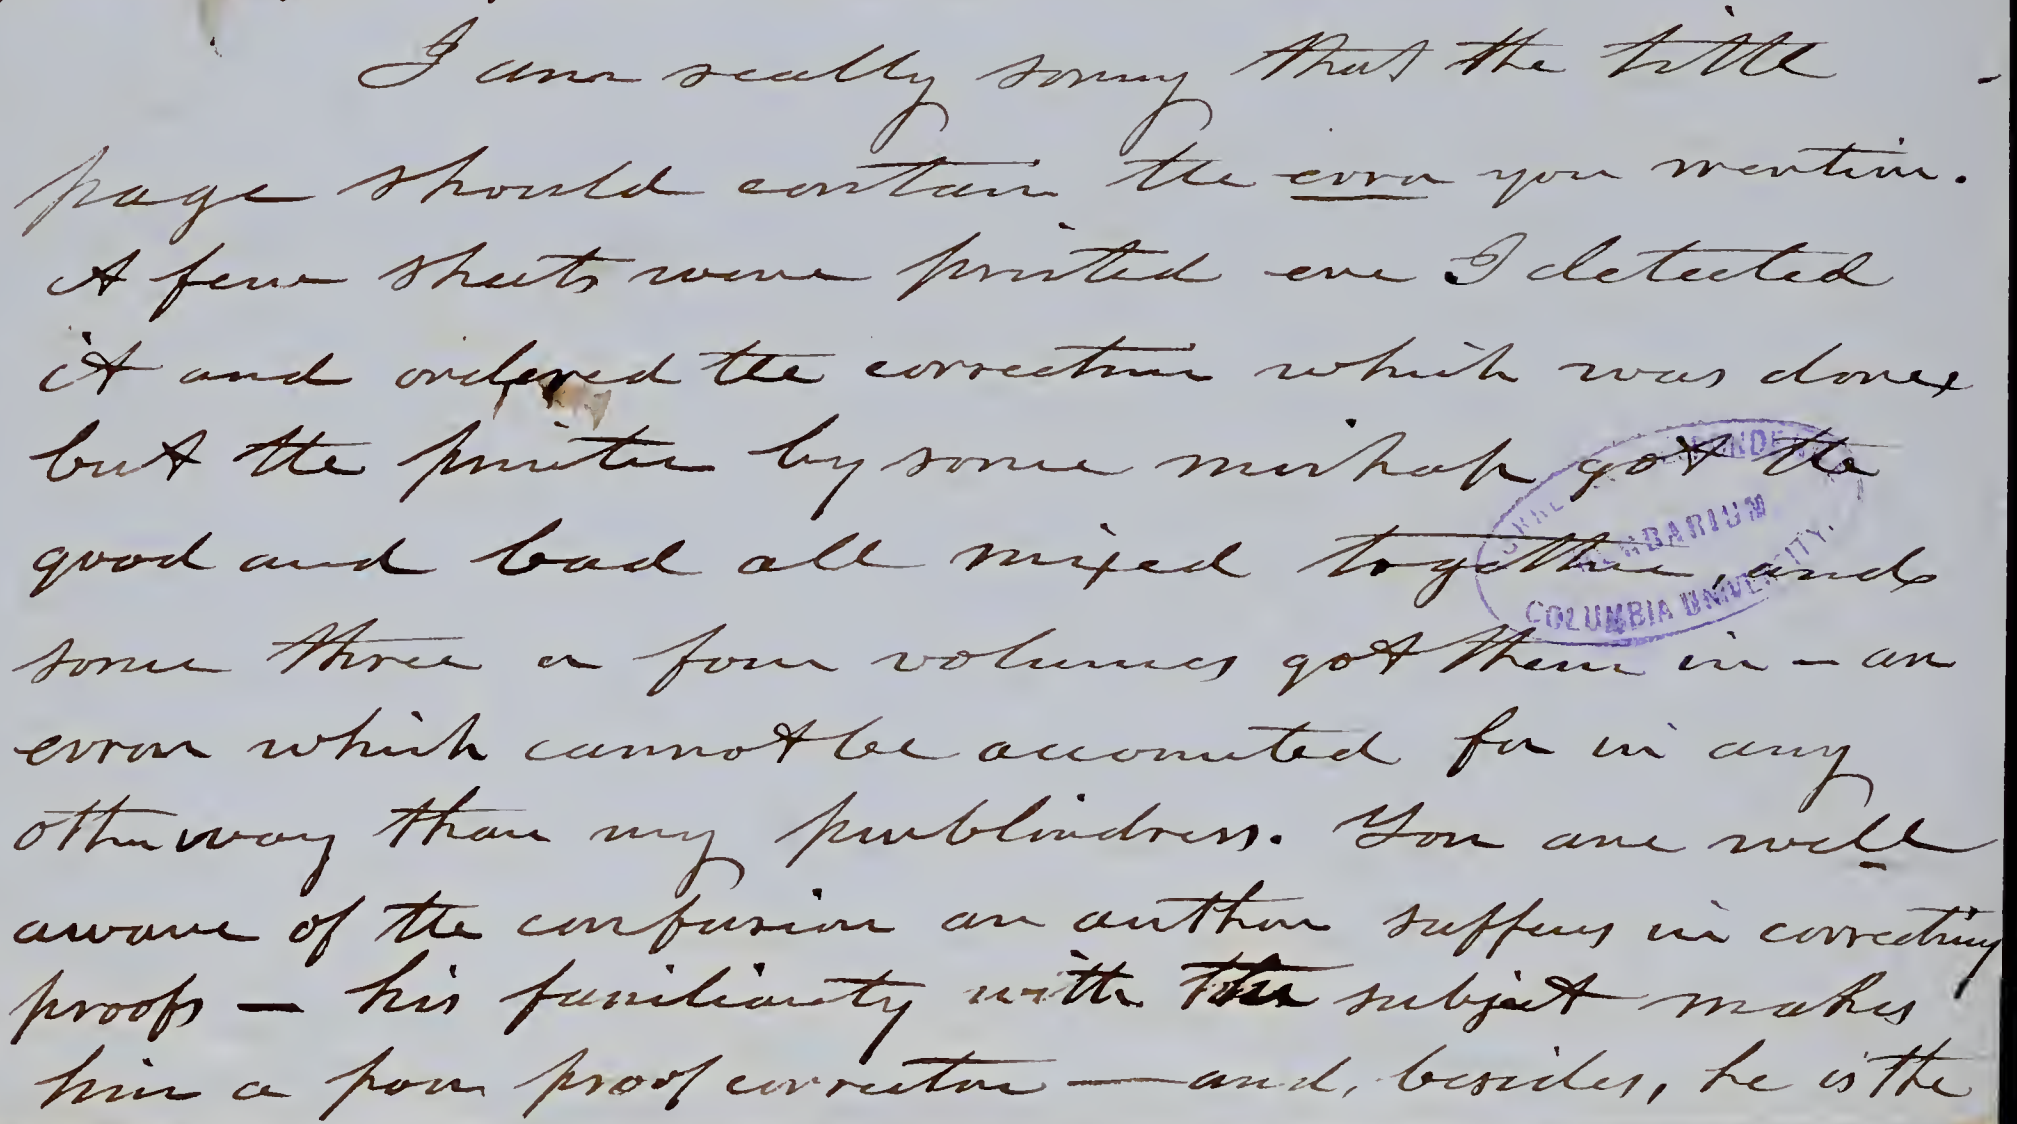 I am really sorry that the title
page should contain the error you mention.
A few sheets were printed ere I detected
it and ordered the correction which was done
but the printer by some mishap got the
good and bad all mixed together, and
some three or four volumes got them in — an
error which cannot be accounted for in any
other way than my purblindness. You are well
aware of the confusion an author suffers in correcting
proofs — his familiarity with the subject makes
him a poor proof corrector — and, besides, he is the
HERBARIUM
COLUMBIA UNIVERSITY.